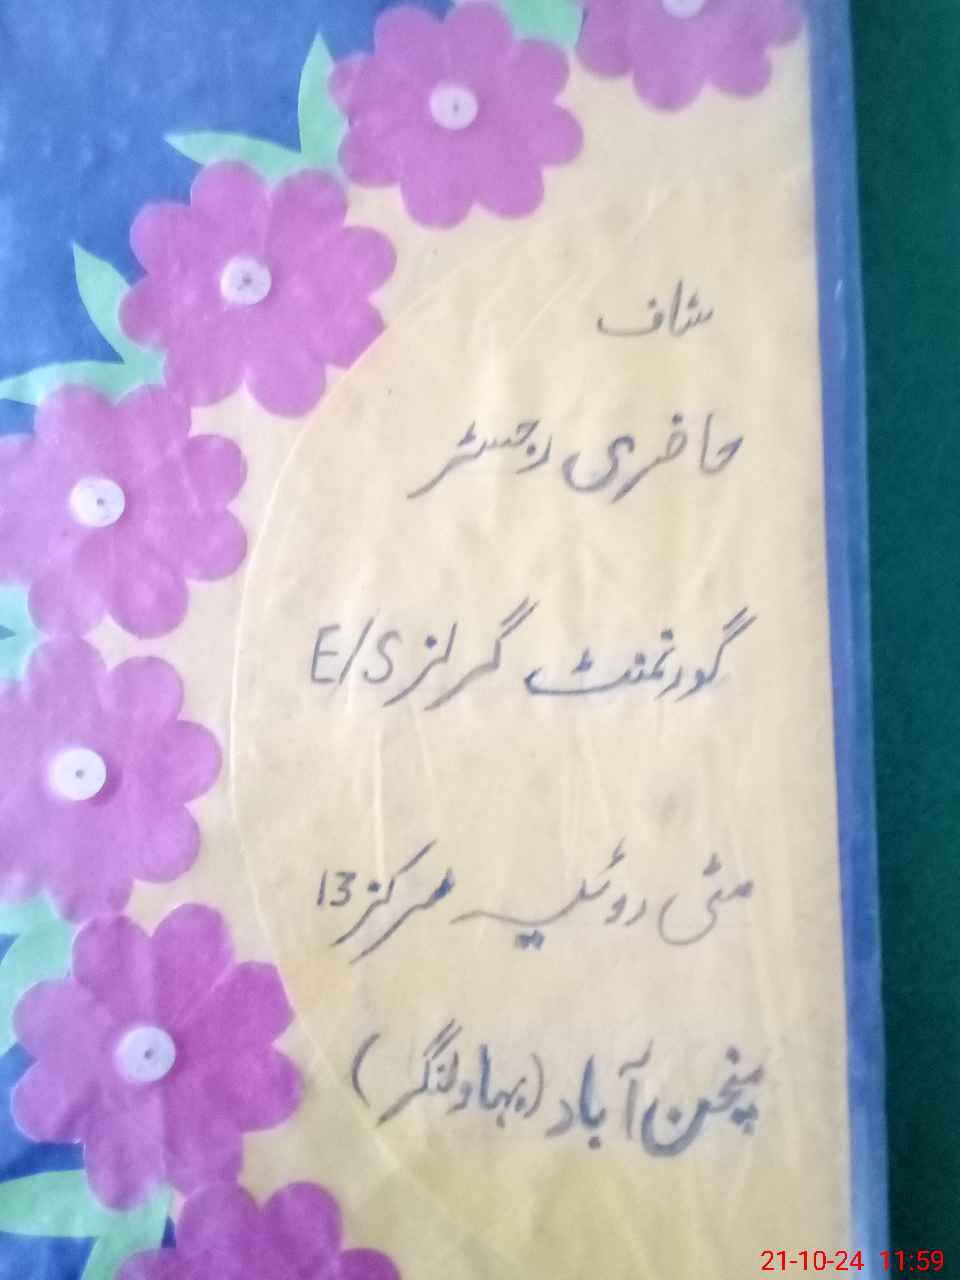 سٹاف
حاضری رجسٹر
گورنمنٹ گرلز E/S
مٹی روئیہ مرکز 13
منچن آباد (بہاولنگر)
21-10-24 11:59